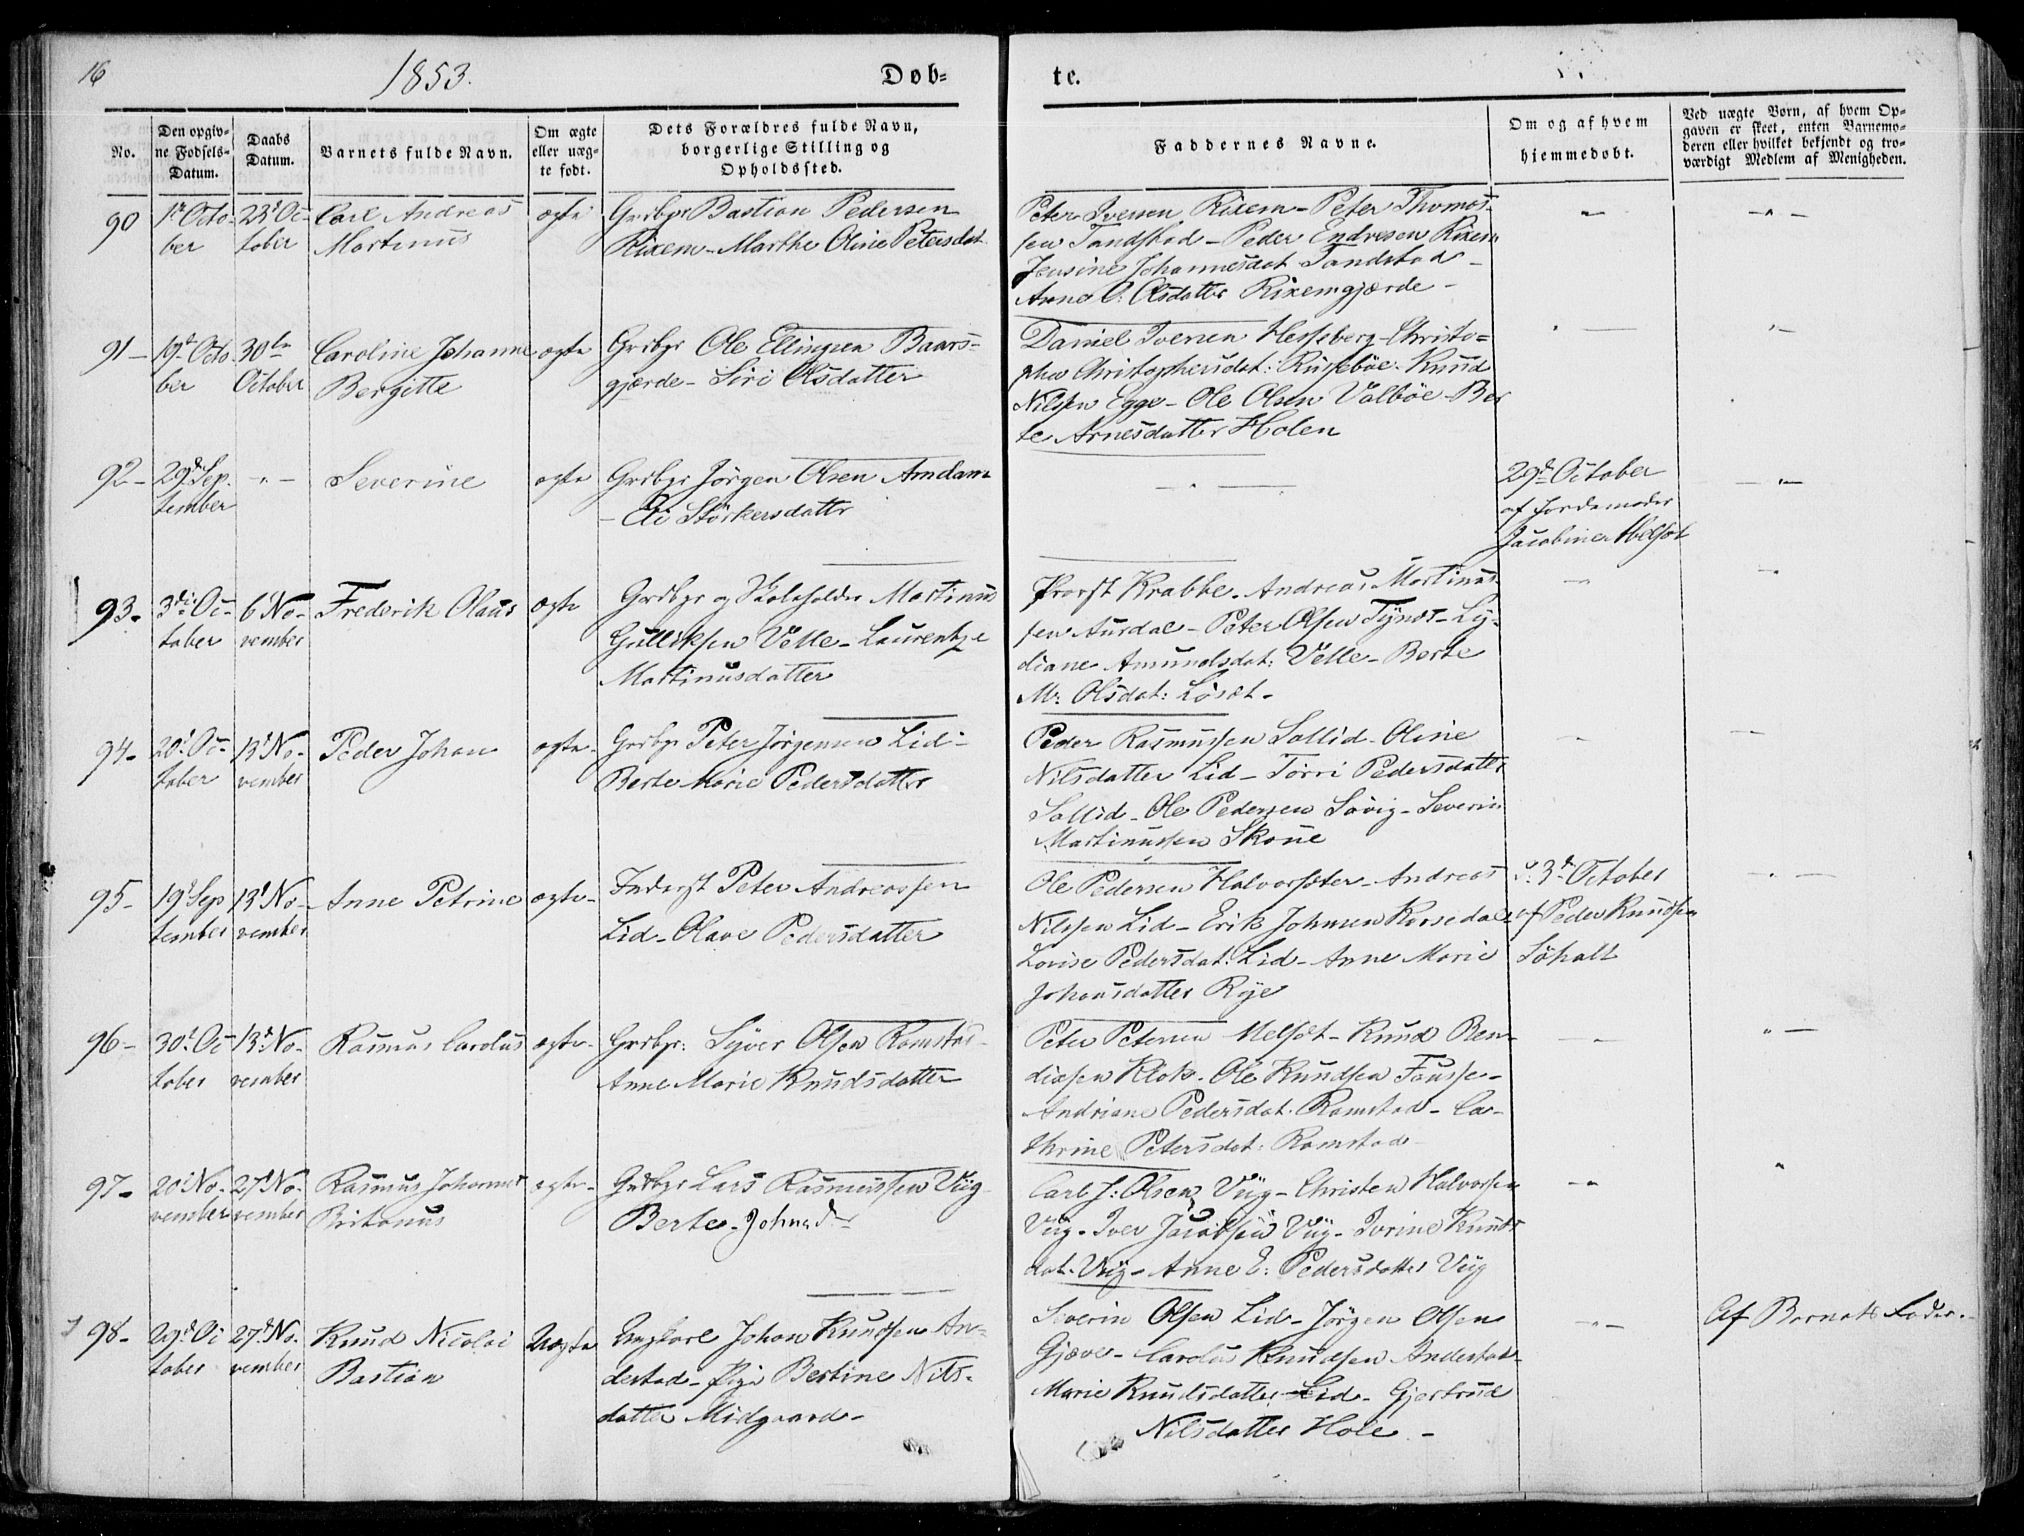 16
1853.
Døb-
te.
No.
Den opgiv-
ne Fødsels-
Datum.
Daabs
Datum.
Barnets fulde Navn.
Om ægte
eller uæg-
te født.
Dets Forældres fulde Navn,
borgerlige Stilling og
Opholdssted.
Faddernes Navne.
Om og af hvem
hjemmedøbt.
Ved uægte Børn, af hvem Op-
gaven er skeet, enten Barnemo-
deren eller hvilket bekjendt og tro-
værdigt Medlem af Menigheden.
90
1ste Octo-
ber
23d Oc-
tober
Carl Andreas
Martinus
ægte
Grdbgr Bastian Pedersen
Rixem - Marthe Oline Petersdat
Peter Iversen Rixem - Peter Thomas-
sen Tandstad - Peder Endresen Rixem
Jensine Johannesdat Tandstad -
Anne O: Olsdatter Rixemgjærde -
91 -
19d Octo
ber
30te
October
Caroline Johanne
Bergitte
ægte
Grdbgr Ole Ellingsen Baars-
gjærde - Siri Olsdatter
Daniel Iversen Hessberg - Christo-
pha Christophersdat: Russebøe - Knud
Nilsen Egge - Ole Olsen Valbøe - Ber
te Arnesdatter Holen
92 -
29d Sep.
tember
- " -
Severine
ægte
Grdbgr Jørgen Olsen Amdam
- Eli Størkersdatter
29d October
af Jordemoder
Jacobine Melsæt
93 -
3die Oc-
tober
6t No-
vember
Frederik Olaus
ægte
Grdbgr og Skoleholder Martinus
Gulliksen Velle - Laurentze
Martinusdatter
Provst Krabbe - Andreas Martinus-
sen Aursdal - Peter Olsen Tynes - Ly-
diane Amundsdat: Velle - Berte
M: Olsdat: Løset -
94 -
20d Oc-
tober
13d No-
vember
Peder Johan
ægte -
Grdbgr Peter Jørgensen Lid -
Berte Marie Pedersdatter
Peder Rasmussen Sollid - Oline
Nilsdatter Lid - Torri Pedersdatter
Sollid - Ole Pedersen Søvig - Severin
Martinussen Skoue
95 -
19d Sep
tember
13d No-
vember
Anne Petrine
ægte -
Inderst Peter Andreassen
Lid - Olave Pedersdatter
Ole Pedersen Halvorsæter - Andreas
Nilsen Lid - Erik Johnsen Korsedal
Lovise Pedersdat: Lid - Anne Marie
Johansdatter Rye
d. 3d October
af Peder Knudsen
Søholt
96 -
30d Oc
tober
13d No-
vember
Rasmus Carolus
ægte -
Grdbgr: Syver Olsen Ramstad -
Anne Marie Knudsdatter
Peter Petersen Melsæt - Knud Ben-
dixsen Klok - Ole Knudsen Fausse -
Andriane Pedersdat. Ramstad - Ca-
thrine Petersdat: Ramstad
97 -
20d No-
vember
27d No-
vember
Rasmus Johannes
Britanus
ægte -
Grdbgr Lars Rasmussen Viig
Berte Johnsd.
Carl J: Olsen Viig - Christen Halvorsen
Viig - Iver Jacobsen Viig - Ivrine Knuds
dat. Viig - Anne E: Pedersdatter Viig
98 -
29d Oc
tober
27d No-
vember
Knud Nicolai
Bastian
Uægte
Ungkarl Johan Knudsen An-
destad - Pige Bertine Nils-
datter Midgaard -
Severin Olsen Lid - Jørgen Olsen
Gjæve - Carolus Knudsen Andestad -
Marie Knudsdatter Lid - Gjertrud
Nilsdatter Hole -
Af Barnets Fader.